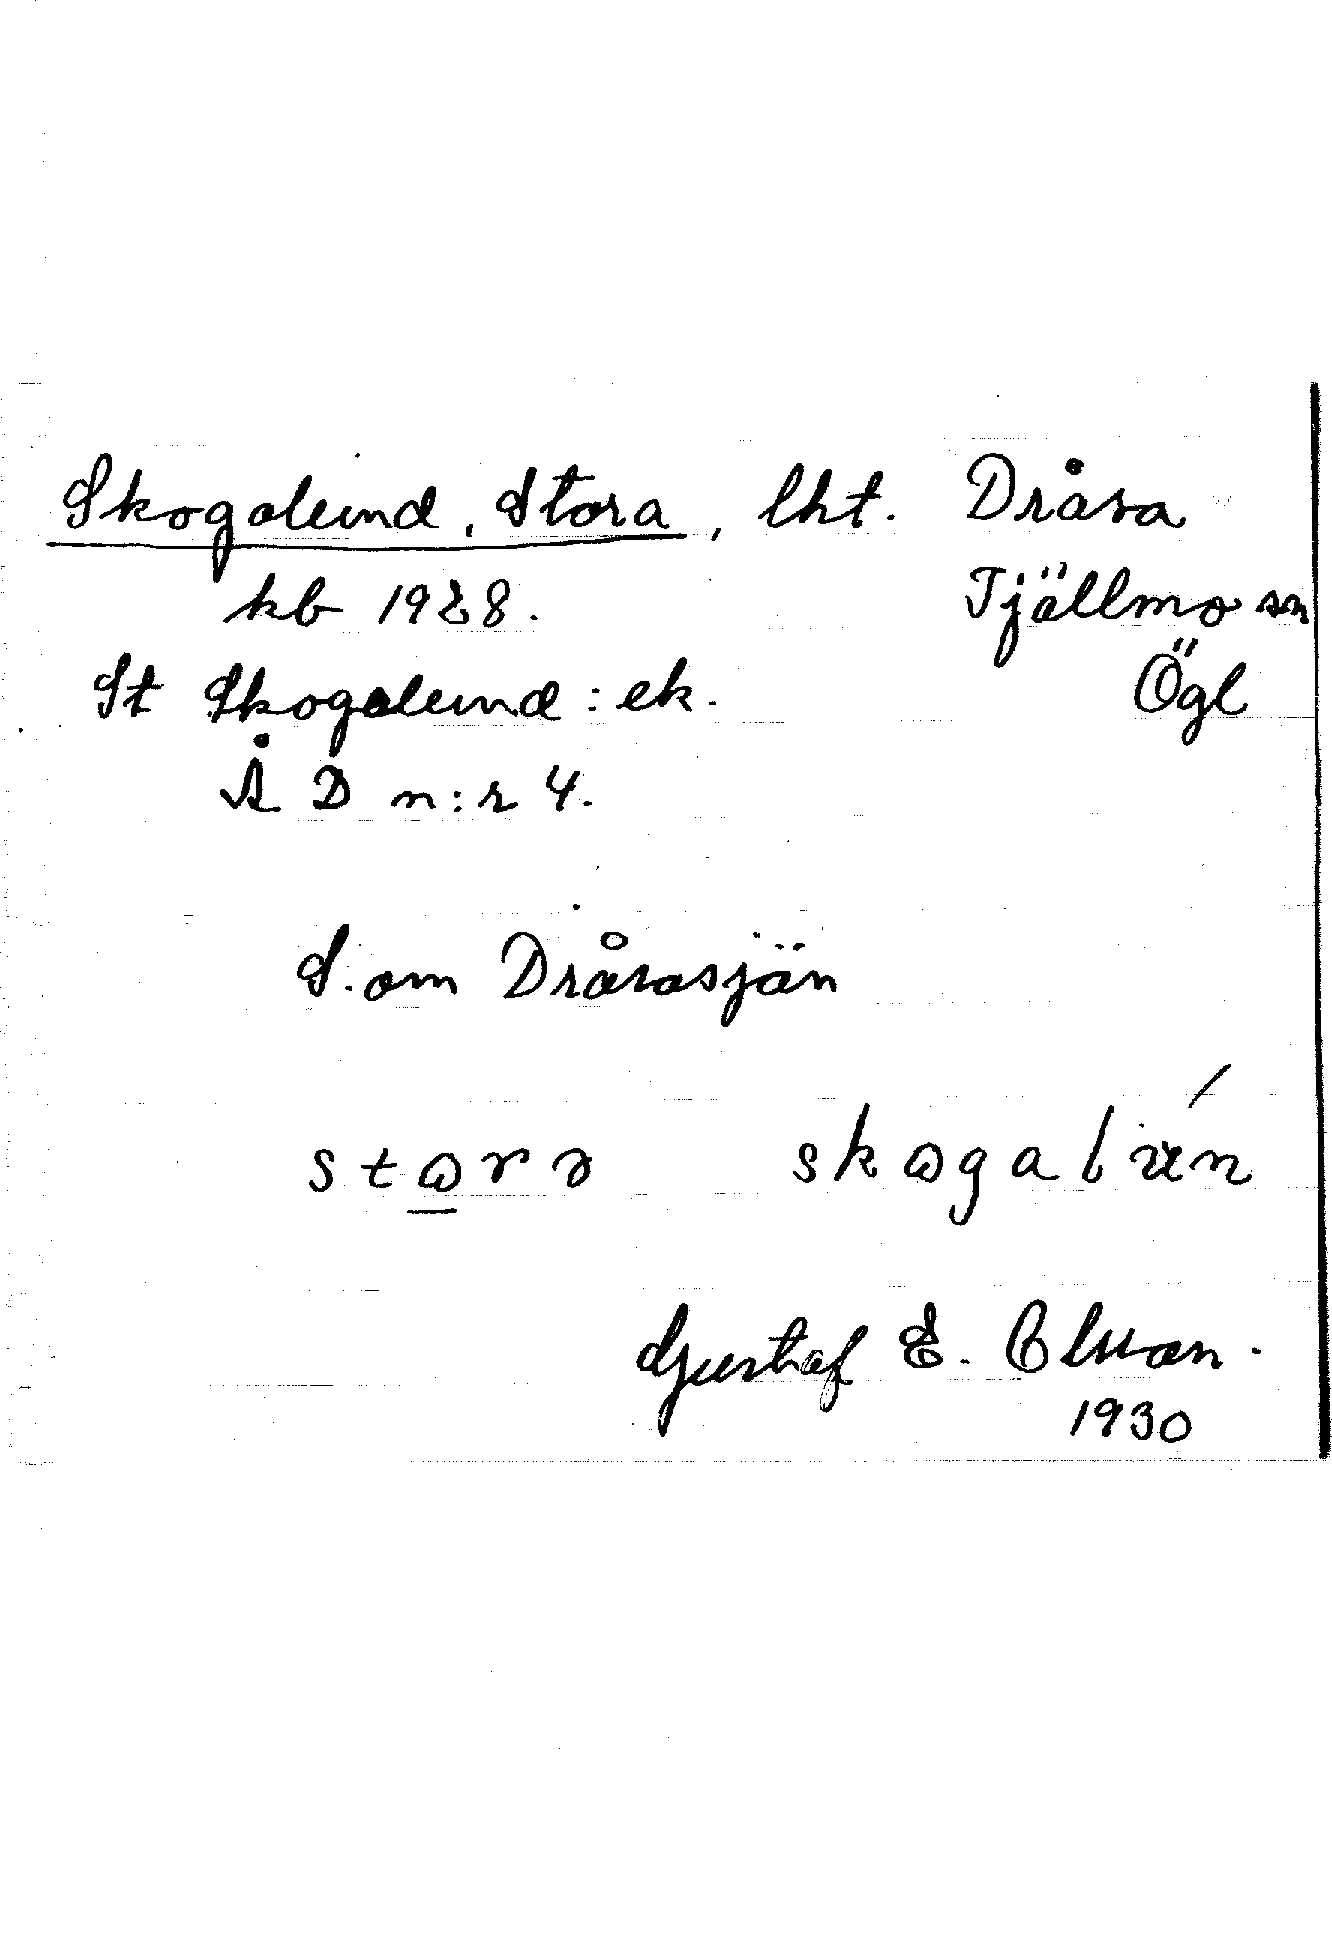 Skogalund, Stora, lht. Dråsa
kb 1928. Tjällmo sn
St Skogalund: ek. Ögl
Å D n:r 4.
S. om Dråsasjön
skogalún
Gustaf E. Olsson.
1930